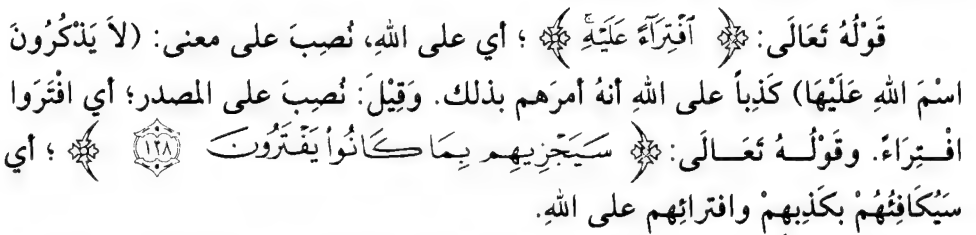 قَوْلُهُ تَعَالَى: ﴿ ٱفْتِرَآءً عَلَيْهِۚ ﴾ ؛ أي على اللهِ، نُصِبَ على معنى: (لاَ يَذْكُرُونَ
اسْمَ اللهِ عَلَيْهَا) كَذِباً على اللهِ أنهُ أمرَهم بذلك. وَقِيْلَ: نُصِبَ على المصدر؛ أي افْتَرَوا
افْـتِرَاءً. وقَوْلُـــهُ تَعَـــالَى: ﴿ سَيَجْزِيهِم بِمَا كَانُوا۟ يَفْتَرُونَ ١٣٨ ﴾ ؛ أي
سَيُكَافِئُهُمْ بكَذِبهِمْ وافترائِهم على اللهِ.